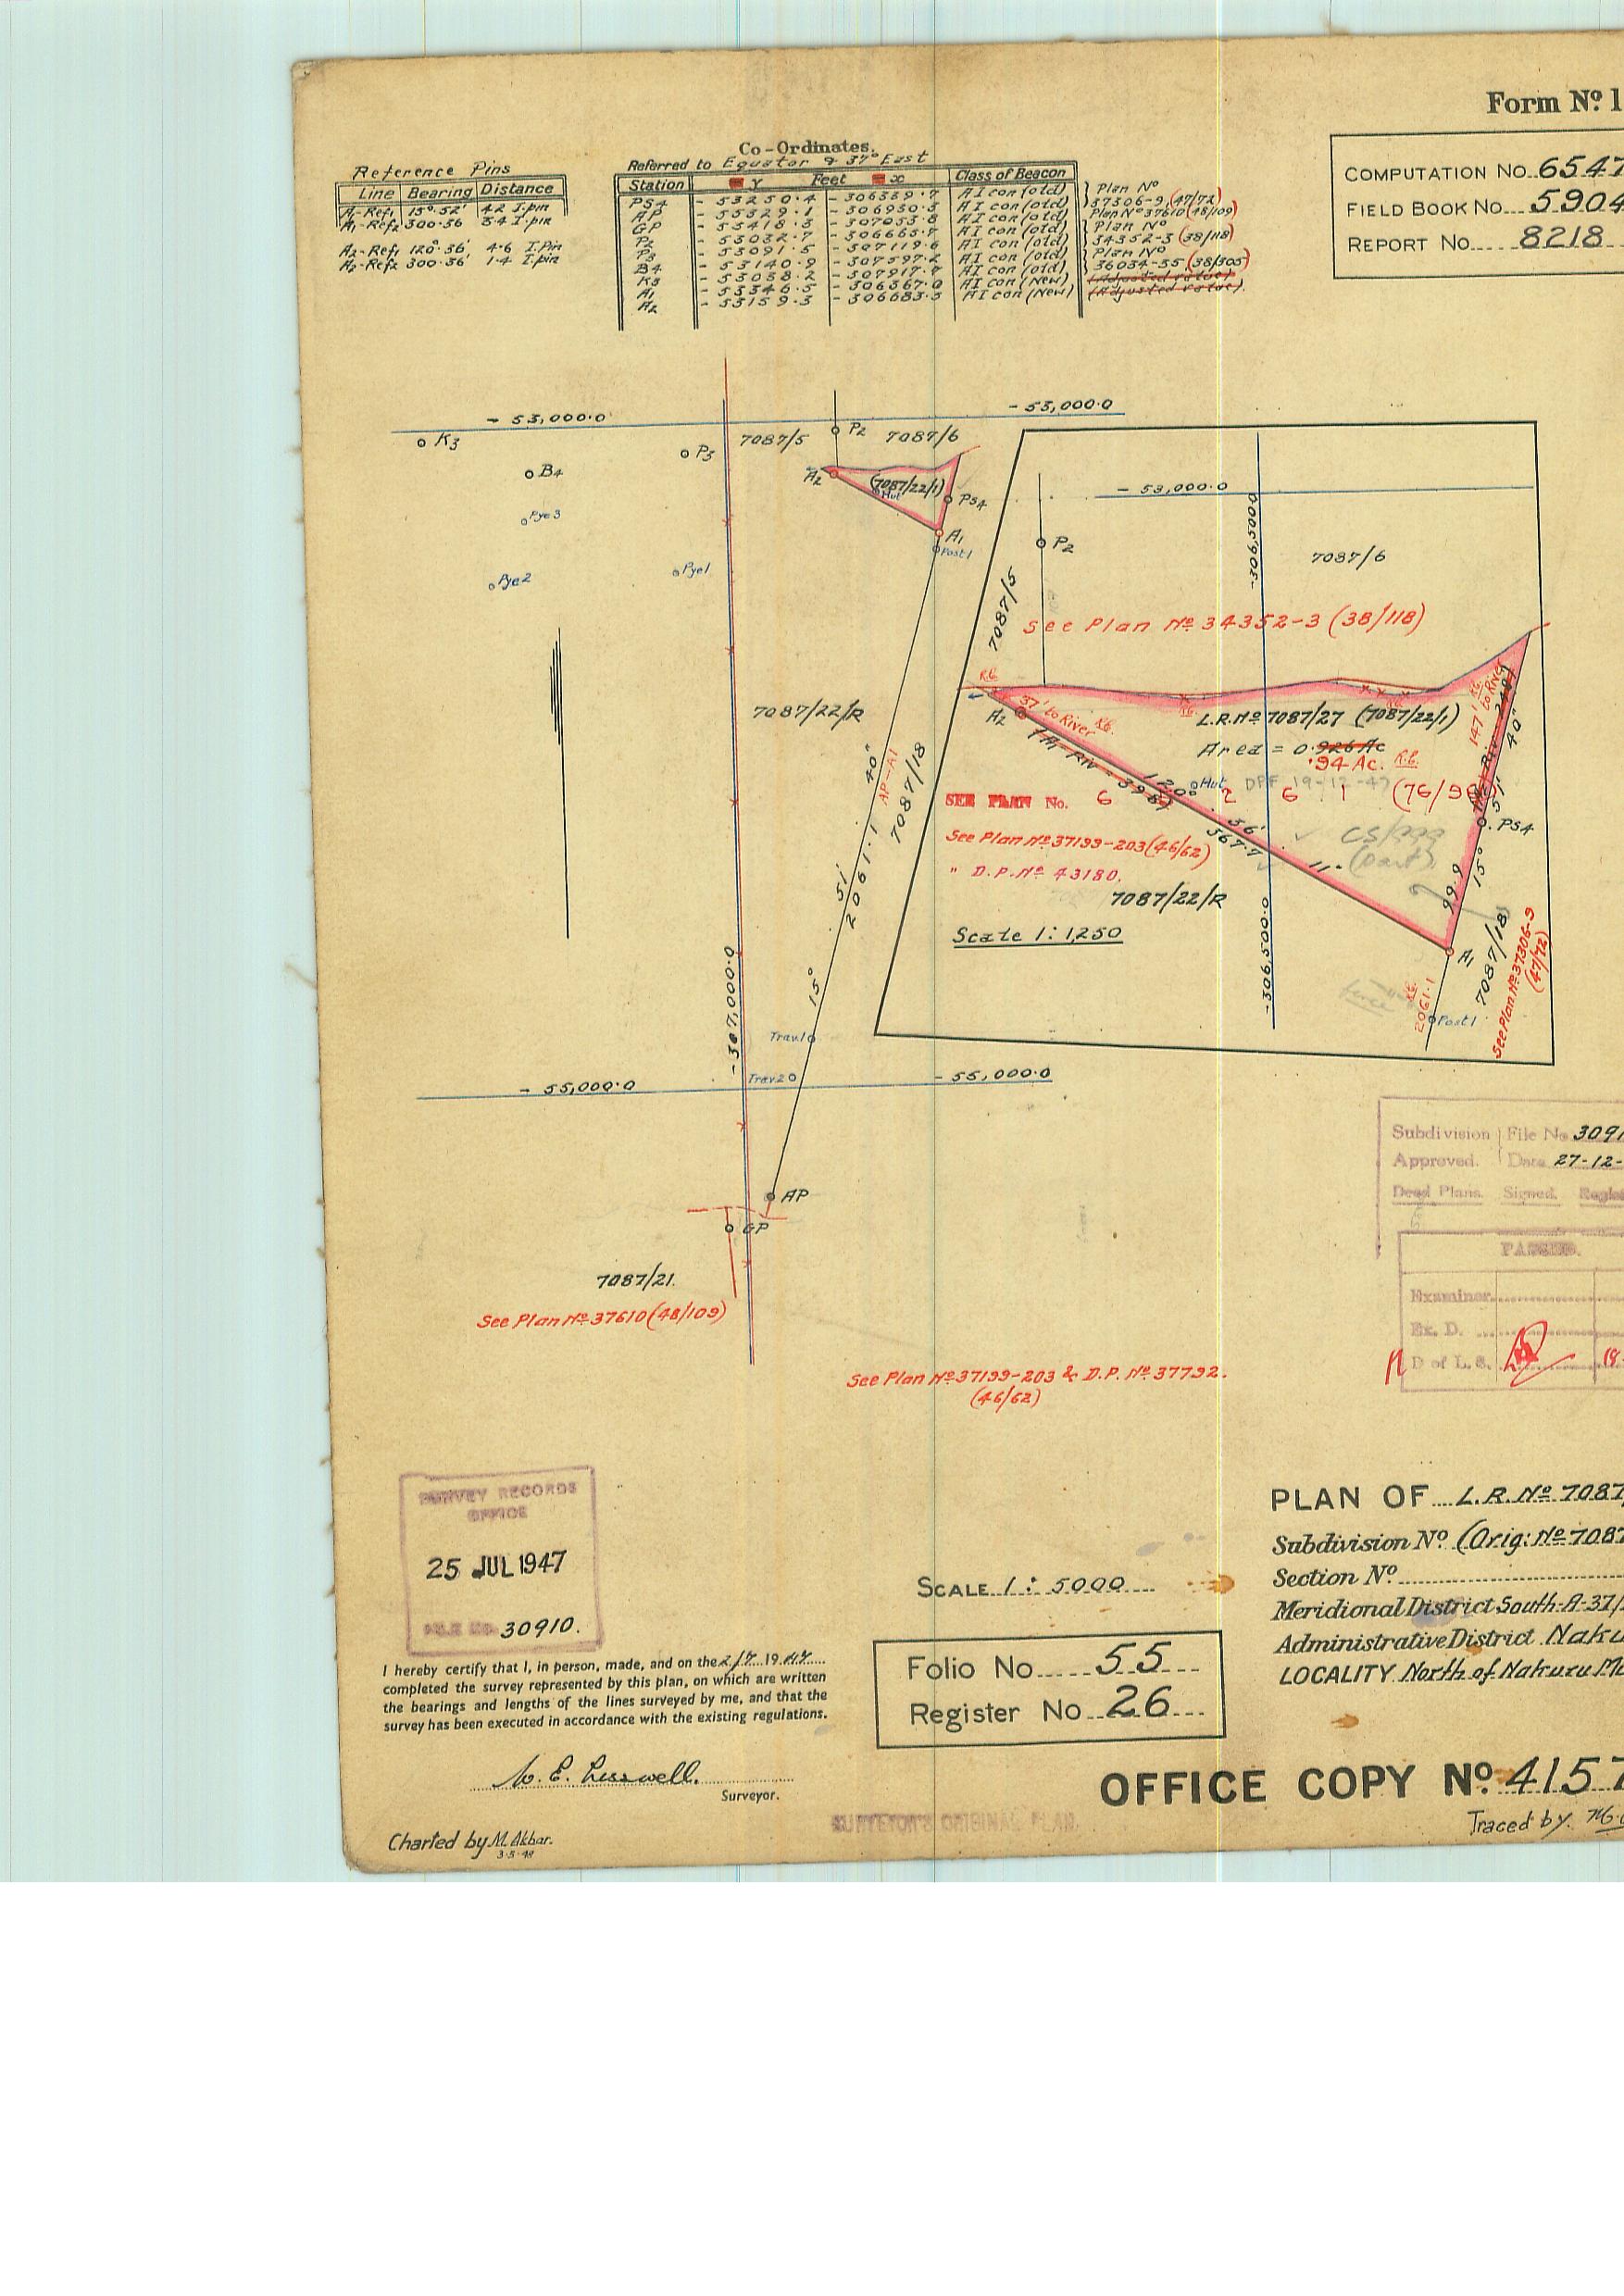 Form Nº 1
COMPUTATION No. 6547
FIELD BOOK No. 5904
REPORT No. 8218
Reference Pins
Line Bearing Distance
A1-Ref1 15°·52' 4·2 I.pin
A1-Ref2 300·56 3·4 I.pin
A2-Ref1 120°·36' 4·6 I.Pin
A2-Ref2 300·36' 1·4 I.pin
Co-Ordinates.
Referred to Equator & 37° East
Station y Feet x Class of Beacon
PSA - 53250·4 - 306339·7 AI con (old)
AP - 55329·1 - 306930·5 AI con (old)
GP - 55418·3 - 307053·8 AI con (old)
P2 - 53032·7 - 306663·7 AI con (old)
P3 - 53091·5 - 307119·6 AI con (old)
B4 - 53140·9 - 307597·2 AI con (old)
K3 - 53038·2 - 307917·7 AI con (old)
A1 - 53346·5 - 306367·0 AI con (New)
A2 - 53159·3 - 306683·3 AI con (New)
Plan Nº
37306-9 (47/72)
Plan Nº 37610 (48/109)
Plan Nº
34352-3 (38/118)
Plan Nº
36034-35 (38/305)
(Adjusted value)
(Adjusted value).
- 53,000·0
- 53,000·0
K3
B4
P3
7087/5
P2
7087/6
A2
(7087/22/1)
Hut
PSA
A1
Post1
Pye3
Pye2
Pye1
- 53,000·0
-306,500·0
P2
7087/6
7087/5
See Plan Nº 34352-3 (38/118)
R.G.
37' to River R.G.
A2
R.G.
L.R.Nº 7087/27 (7087/22/1)
Area = 0·926 Ac
·94 Ac. R.G.
147' to River
R.G.
Hut DPF 19-12-47
SEE PLAN No. 6 2 6 1
120° 36' 11"
567·7
PSA
15° 51' 40"
99·9
See Plan Nº 37199-203 (46/62)
" D.P. Nº 43180.
7087/22/R
Scale 1:1,250
-306,500·0
A1
7087/18
See Plan Nº 37306-9
(47/72)
R.G.
2061·1
fence
Post1
7087/22/R
AP-A1
7087/18
15° 51' 40"
2061·1
-307,000·0
Trav.1
Trav.2
- 55,000·0
- 55,000·0
AP
GP
7087/21.
See Plan Nº 37610 (48/109)
See Plan Nº 37199-203 & D.P. Nº 37792.
(46/62)
Subdivision File No 3091
Approved. Date 27-12-
Deed Plans. Signed.
PASSED.
Examiner
Ex. D.
D of L. S.
SURVEY RECORDS
OFFICE
25 JUL 1947
FILE No. 30910.
I hereby certify that I, in person, made, and on the 2/7 1947
completed the survey represented by this plan, on which are written
the bearings and lengths of the lines surveyed by me, and that the
survey has been executed in accordance with the existing regulations.
Surveyor.
Charted by M. Akbar.
3·5·48
SCALE 1 : 5000
Folio No. 55
Register No. 26
SURVEYOR'S ORIGINAL PLAN.
PLAN OF L.R. Nº 7087
Subdivision Nº (Orig: Nº 7087
Section Nº
Meridional District South-A-37/
Administrative District Naku
LOCALITY North of Nakuru Mu
OFFICE COPY Nº 4157
Traced by